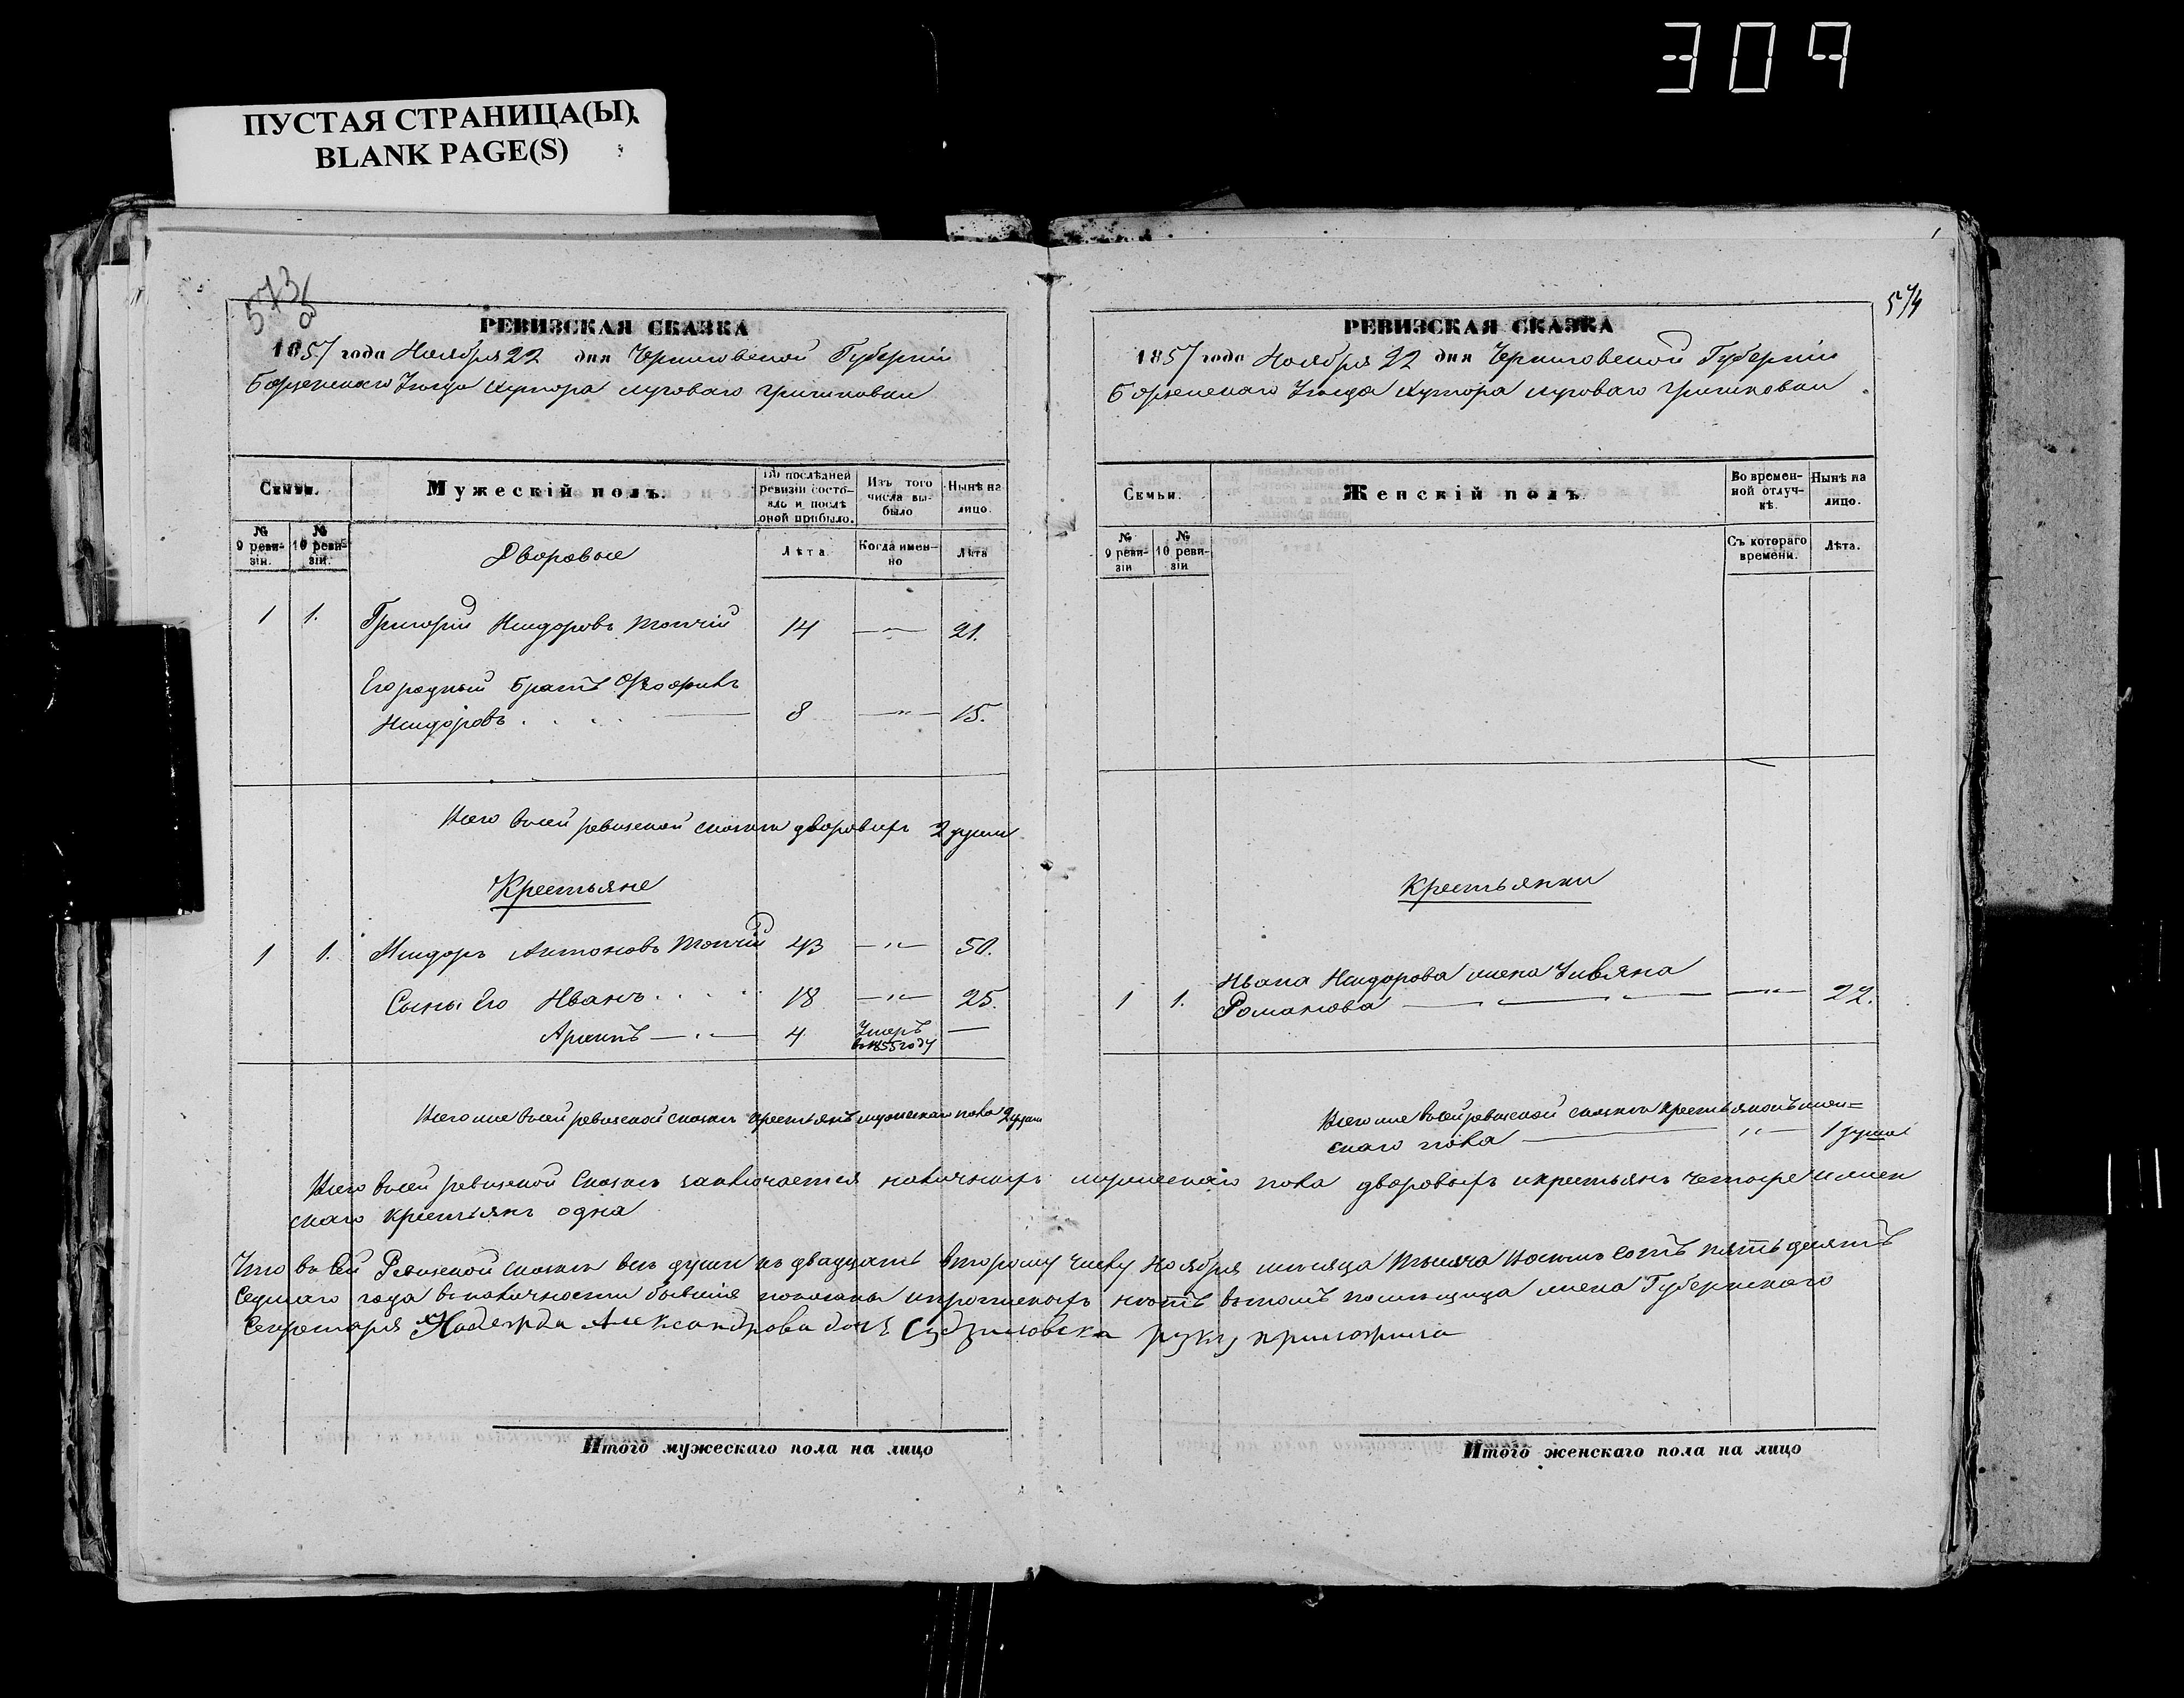 309
ПУСТАЯ СТРАНИЦА(Ы)
BLANK PAGE(S)
573 об
РЕВИЗСКАЯ СКАЗКА
1857 года Ноября 22 дня Черниговской Губерніи
Борзенскаго Уѣзда Хутора луговаго Григоровки
Семьи.
Мужескій полъ.
По послѣдней ревизіи состояло и послѣ оной прибыло.
Изъ того числа выбыло
Нынѣ на лицо.
№ 9 ревизіи.
№ 10 ревизіи.
Дворовые
Лѣта
Когда именно
Лѣта
1 1. Григорій Исидоровъ Топчій 14 — 21.
Его родный братъ
Исидоровъ 8 — " — 15.
Итого в сей ревизской сказкѣ дворовыхъ 2 души
Крестьяне
1 1. Исидоръ Антоновъ Топчій 43 — " — 50.
Сыны Его Иванъ 18 — " — 25.
4 Умеръ —
в 1855 году
Итого же в сей ревизской сказкѣ крестьянъ мужескаго пола 2 души
574
РЕВИЗСКАЯ СКАЗКА
1857 года Ноября 22 дня Черниговской Губерніи
Борзенскаго Уѣзда Хутора луговаго Григоровки
Семьи.
Женскій полъ.
Во временной отлучкѣ.
Нынѣ на лицо.
№ 9 ревизіи
№ 10 ревизіи
Съ котораго времени.
Лѣта.
Крестьянки
Ивана Исидорова жена Ульяна
1 1. Романова — " — 22.
Итого же в сей ревизской сказкѣ крестьянокъ жен=
скаго пола " 1 душа
Итого в сей ревизской Сказкѣ заключается наличныхъ мужескаго пола дворовыхъ и крестьянъ четыре и жен
скаго крестьянъ одна
Что въ сей Ревизской сказкѣ всѣ души къ двадцать второму числу Ноября мѣсяца тысяча восемь сотъ пятьдесятъ
седмаго года в наличности бывшія показаны и прописныхъ нѣтъ в томъ помѣщица жена Губернскаго
Секретаря Надежда Александрова дочь руку приложила
Итого мужескаго пола на лицо
Итого женскаго пола на лицо